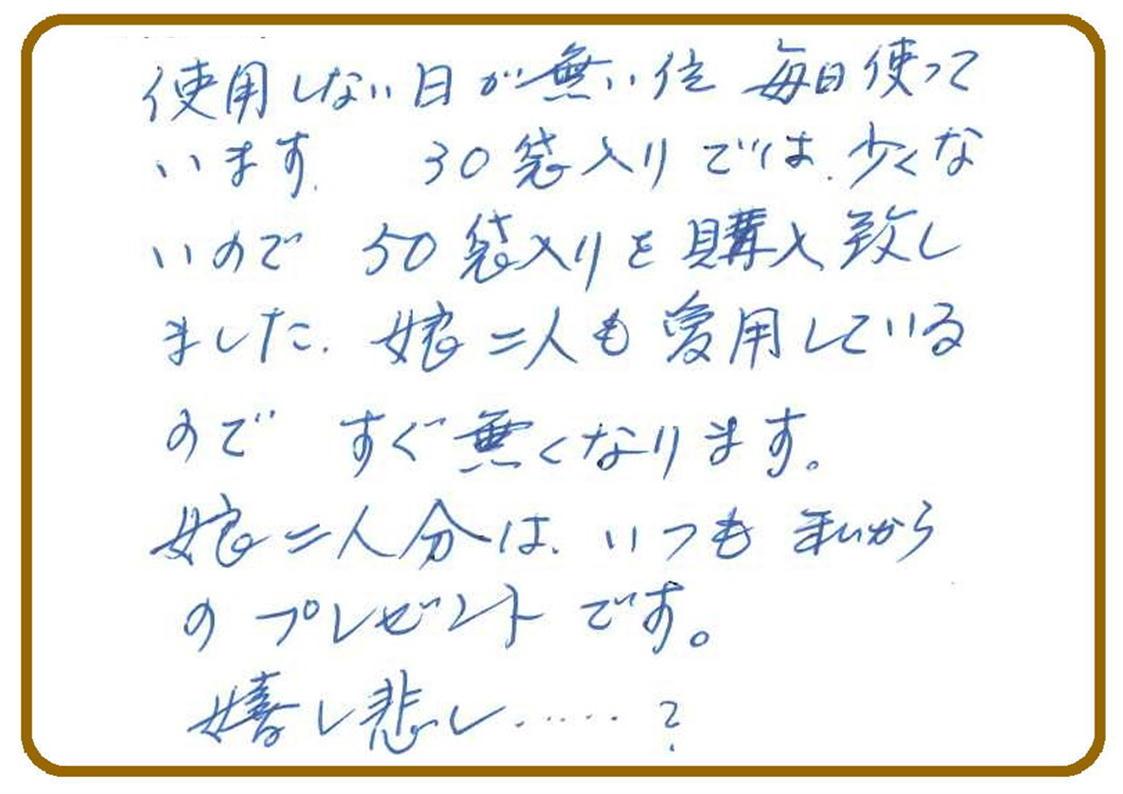 使用しない日が無い位 毎日使って
います. 30袋入りでは、少くな
いので 50袋入りを購入致し
ました. 娘二人も愛用している
ので すぐ無くなります。
娘二人分は、いつも 私から
の プレゼント です。
嬉し悲し……?